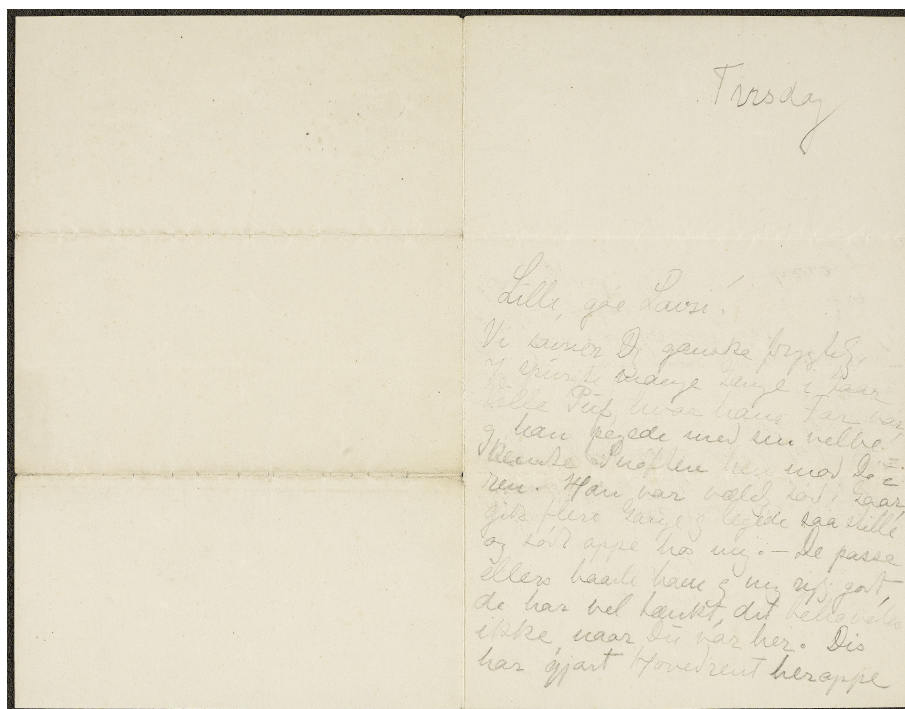 Tirsdag
Lille, goe Lavsi!
Vi savner Dig ganske frygtelig,
J spurgte mange Gange i Gaar
Lille Puf, hvor hans Far var
og han pegede med sin velbe=
kendte Snøften hen mod Dø=
ren. Han var vældig sød i Gaar,
gik flere Gange og legede saa stille
og sødt oppe hos mig. - De passe
ellers baade ham og mig rigtig godt,
de har vel tænkt, det behøvedes
ikke, naar Du var her. Dis
har gjort Hovedrent heroppe